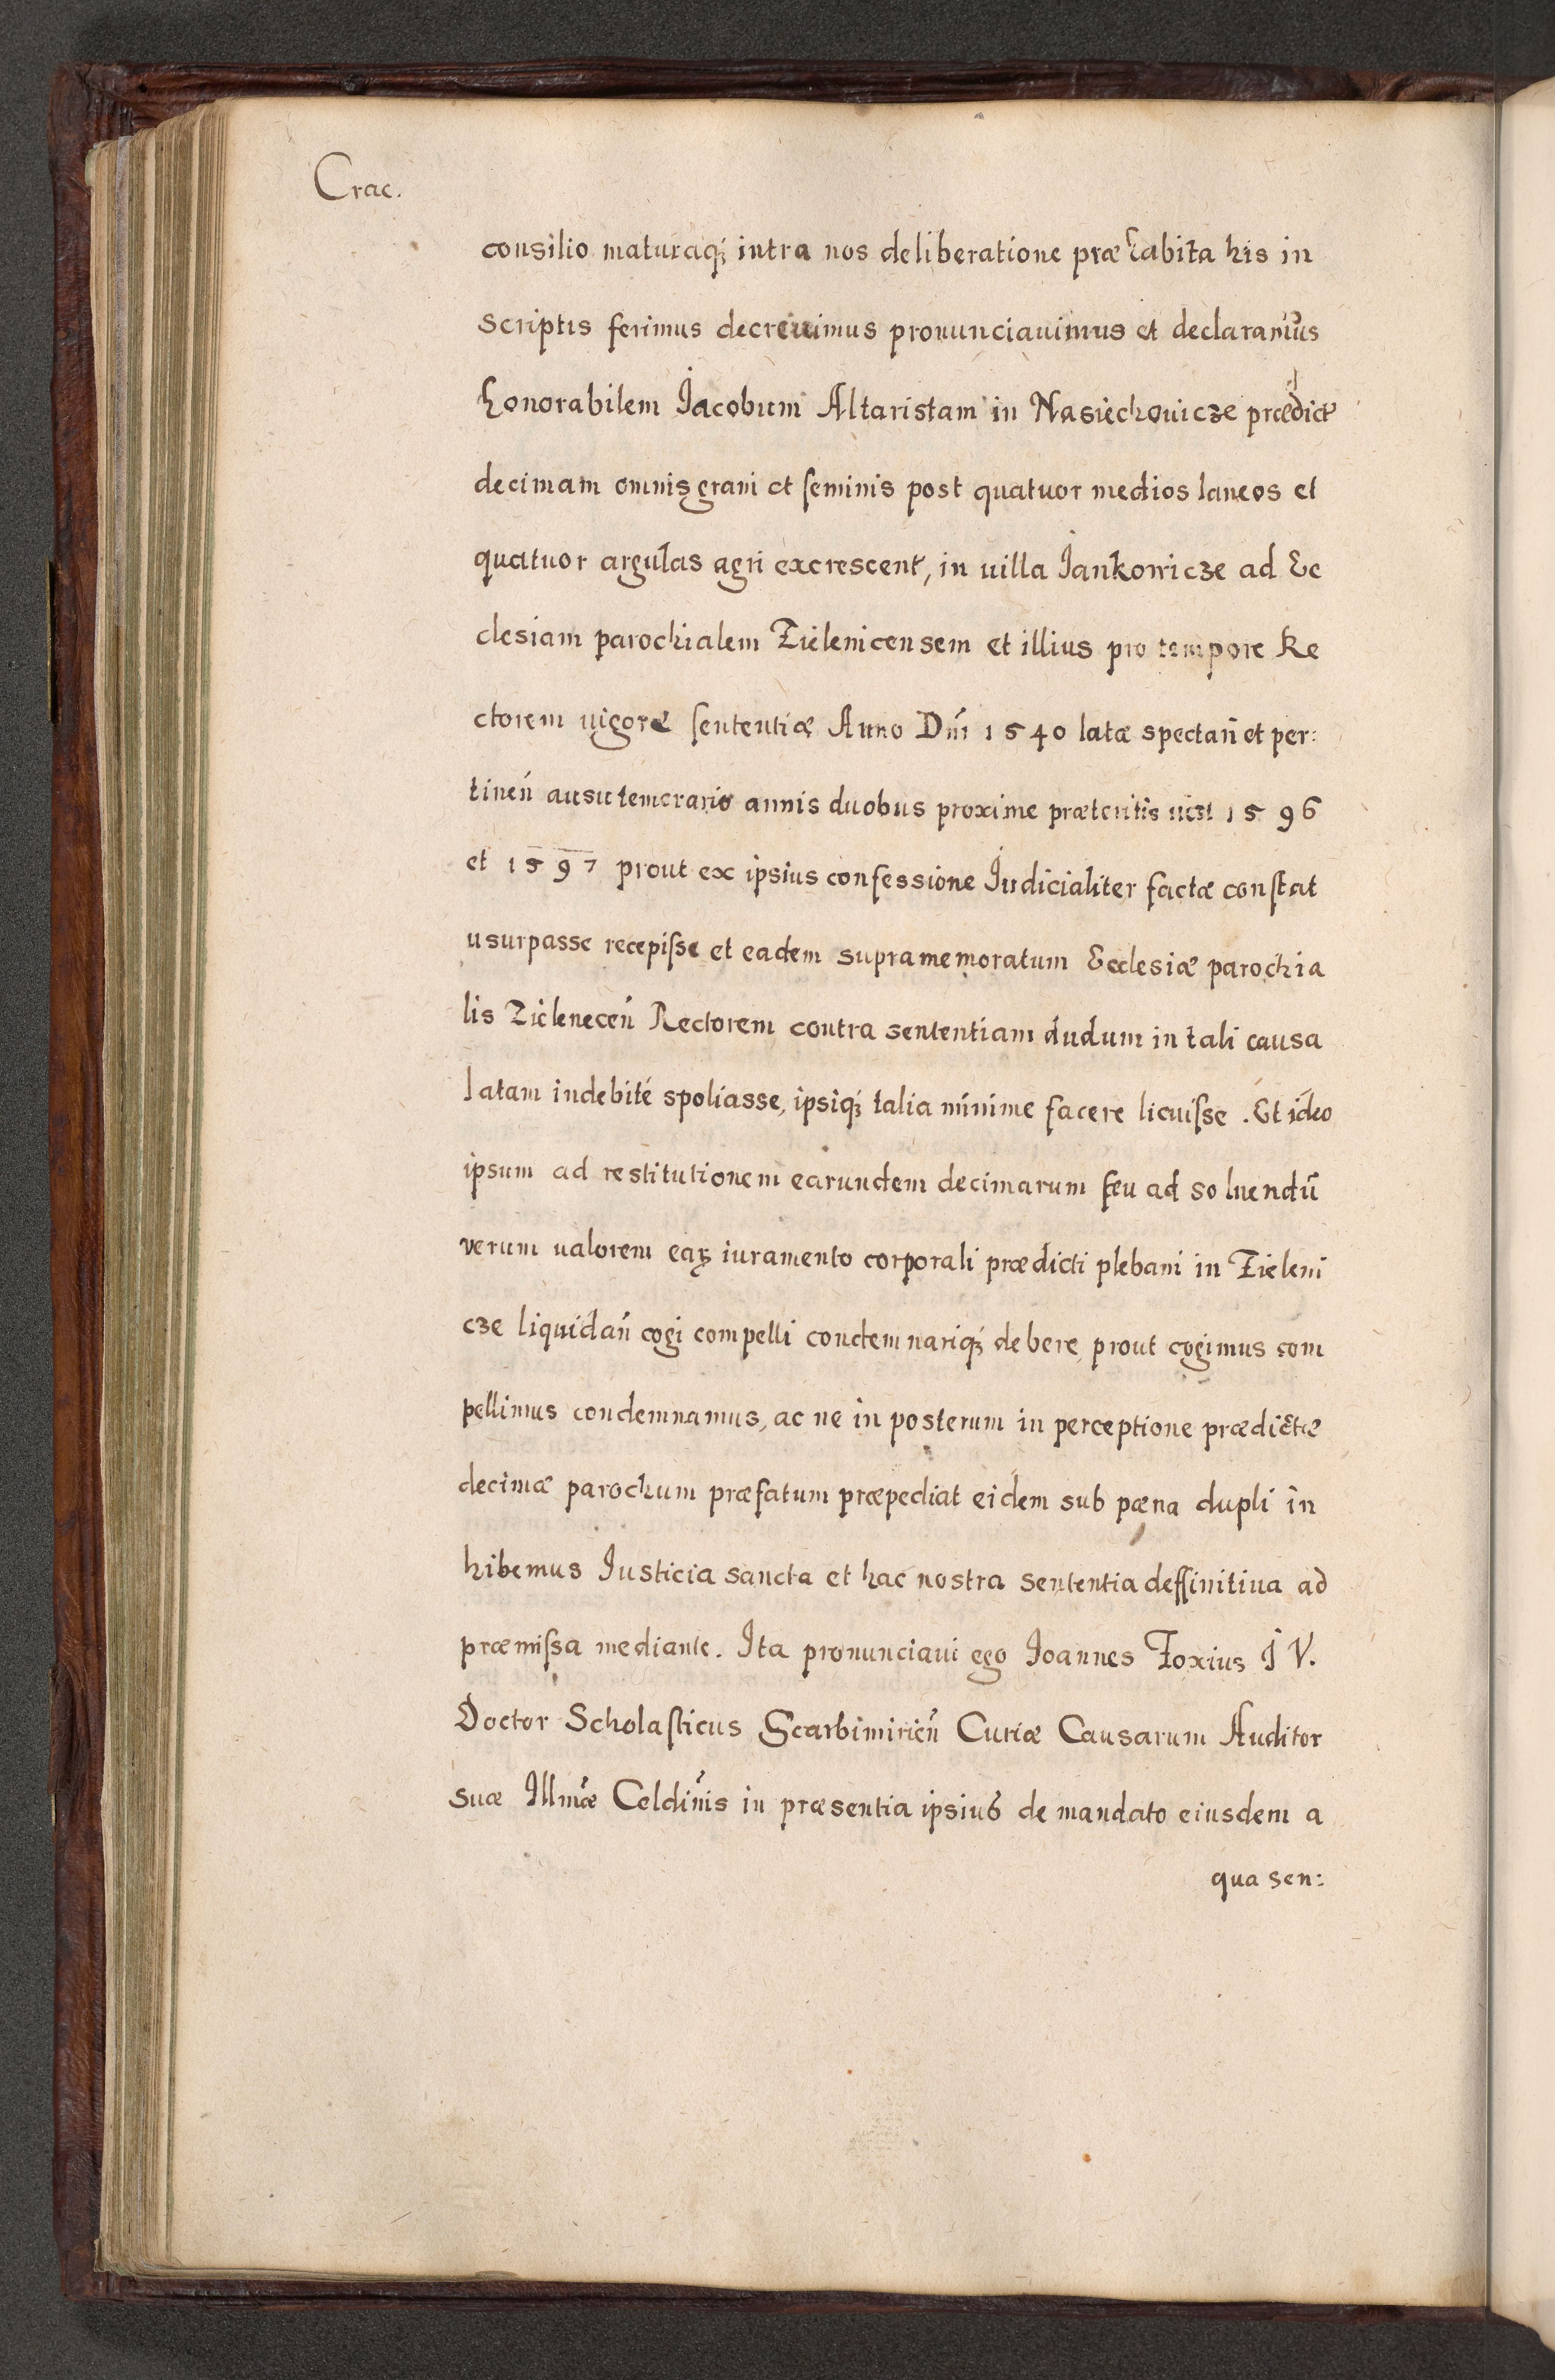 Crac.
consilio maturaq́; intra nos deliberatione præhabita his in
scriptis ferimus decreuimus pronunciauimus et declaramus
honorabilem Jacobum Altaristam in Nasiechouicze prædict
decimam omnis grani et seminis post quatuor medios laneos et
quatuor argulas agri excrescent, in uilla Jankowicze ad Ec
clesiam parochialem Zielenicensem et illius pro tempore Re
ctorem uigore sententiæ Anno Dnĩ 1540 latæ spectañ et per:
tineñ ausu temerario annis duobus proxime præteritis uizt 1596
et 1597 prout ex ipsius confessione Judicialiter factæ constat
usurpasse recepisse et eadem supramemoratum Ecclesiæ parochia
lis Zieleneceñ Rectorem contra sententiam dudum in tali causa
latam indebité spoliasse, ipsiq́; talia minime facere licuisse. Et ideo
ipsum ad restitutionem earundem decimarum seu ad soluendũ
verum ualorem eaꝝ iuramento corporali prædicti plebani in Zieleni
cze liquidañ cogi compelli condemnariq́; debere, prout cogimus com
pellimus condemnamus, ac ne in posterum in perceptione prædictæ
decimæ parochum præfatum præpediat eidem sub pæna dupli in
hibemus Justicia sancta et hac nostra sententia deffinitiua ad
præmissa mediante. Ita pronunciaui ego Joannes Foxius J V.
Doctor Scholasticus Scarbimirieñ Curiæ Causarum Auditor
suæ Illmæ Celdinis in præsentia ipsius de mandato eiusdem a
qua sen: